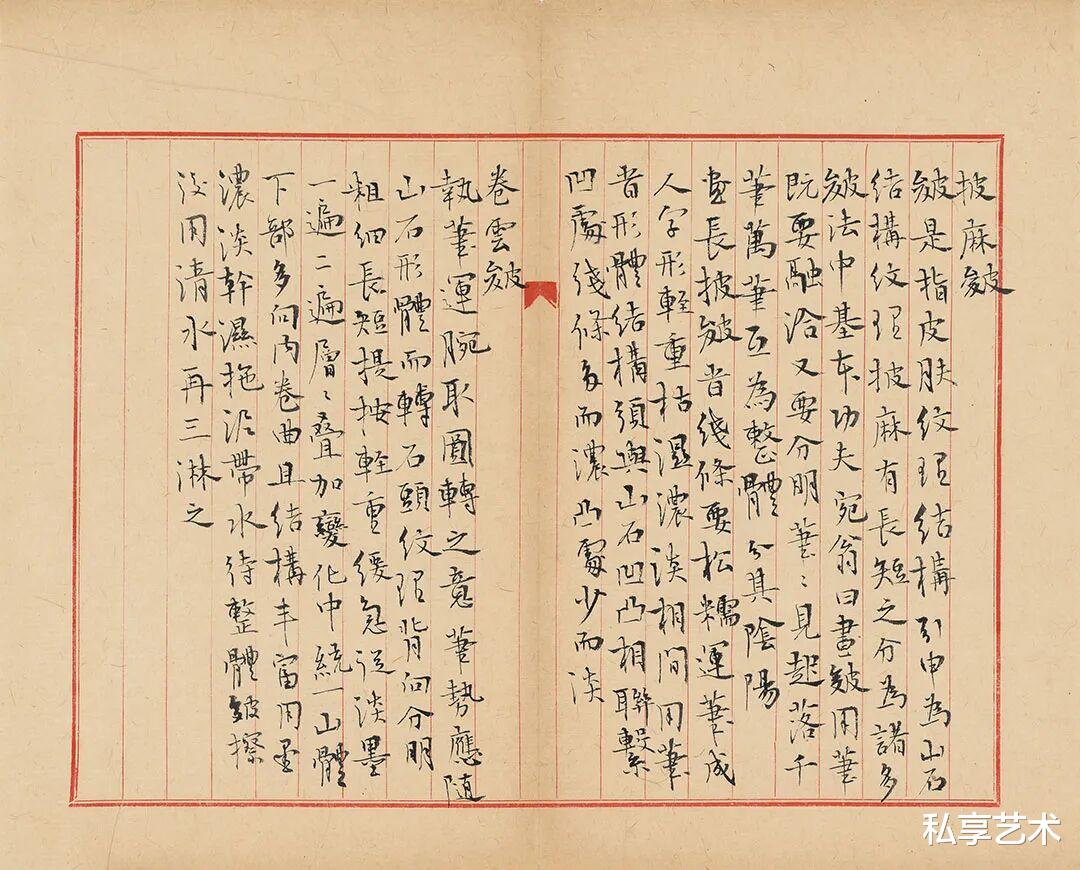 披麻皴
皴是指皮肤纹理结構引申為山石
结構纹理披麻有長短之分為諸多
皴法中基本功夫宛翁曰畫皴用筆
既要融洽又要分明筆〻見起落千
筆萬筆互為整體分其陰陽
畫長披皴者线條要松糯運筆成
人字形輕重枯濕濃淡相間用筆
者形體结構須與山石凹凸相聯繫
凹處线條多而濃凸處少而淡
卷雲皴
執筆運腕取圓轉之意筆勢應随
山石形體而轉石頭纹理背向分明
粗細長短提按輕重缓急從淡墨
一遍二遍層〻叠加變化中統一山體
下部多向内卷曲且结構丰富用墨
濃淡幹濕拖泥帶水待整體皴擦
後用清水再三淋之
私享艺术